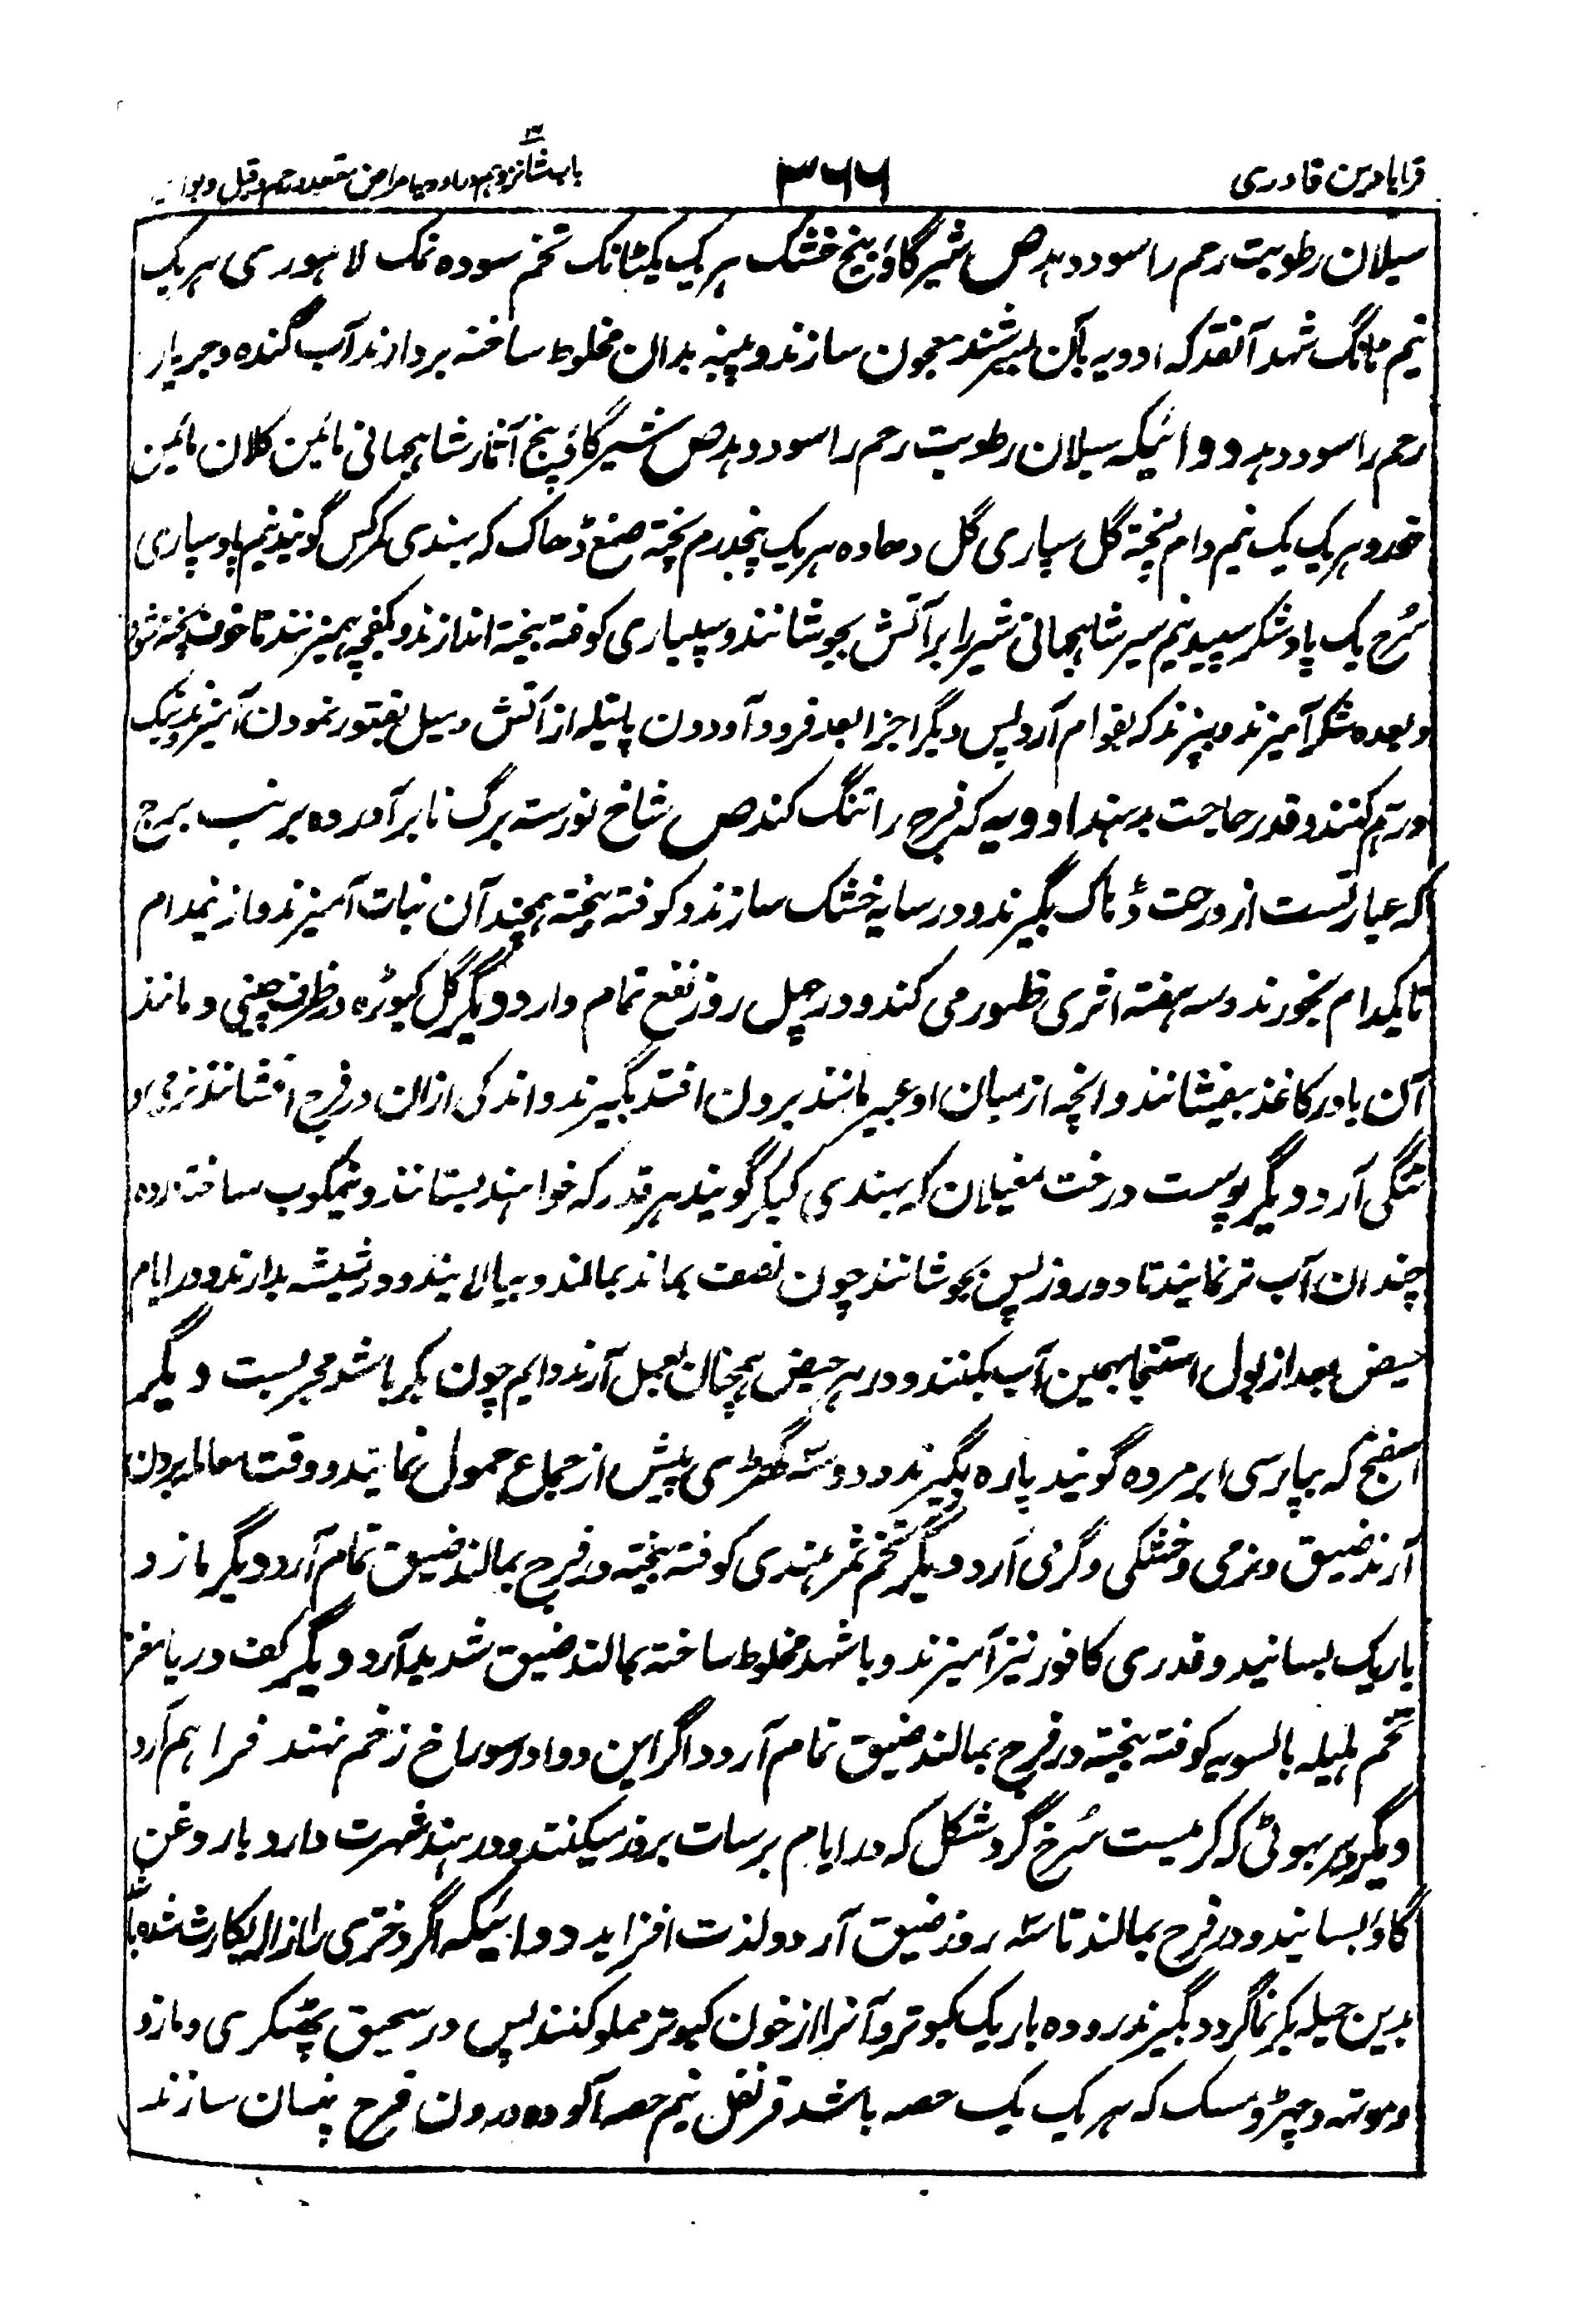 قرابادین قادری
۳۶۶
باب شانزدهم در ادویه امراض مقعد و رحم و قبل و
سیلان رطوبت رحم را سود دهد ص شیر گاؤ بنج خشک هر یک یکٹانک تخم سوده نمک لاهوری هر یک
نیم ٹانگ شهد آنقدر که ادویه بآن بسرشند معجون سازند و پنبه بدان مخلوط ساخته بردارند آب گنده و جریان
رحم را سود دهد دوائیکه سیلان رطوبت رحم را سود دهد ص شیر گاؤ پنج آثار شاهجهانی مائین کلان مائین
خورد هر یک یک نیم دام پخته گل سپاری گل دهاوه هر یک پنجدرم پخته صمغ ڈهاک که بهندی کمرکس گویند نیم پاو سپاری
سُرخ یک پاو شکر سپید نیم سیر شاهجهانی شیر را بر آتش بجوشانند و سپیاری کوفته بیخته اندازند و بکفچه همیزنند تا خوب پخته شود
و بعده شکر آمیزند و بپزند که بقوام آرد پس دیگر اجزا بعد فرود آوردن پاتیله از آتش و میل بفتور نمودن آمیزند و نیک
درهم کنند و قدر حاجت بدهند ادویه که فرج را تنگ کند ص شاخ نورسته برگ نا بر آورده بر نسب برج
که عبارتست از درخت ڈهاک بگیرند و در سایه خشک سازند و کوفته بیخته همچند آن نبات آمیزند و از نیمدام
تا یکدام بخورند و سه هفته اثری ظهور می کند و در چهل روز نفع تمام دارد دیگر گل کیوڑه در ظرف چینی و مانند
آن یا در کاغذ بیفشانند و انچه از میان او عبیر مانند برون افتد بگیرند و اندکی ازان در فرج افشانند نرمی و
تنگی آرد دیگر پوست درخت مغیلان که بهندی کیکر گویند هر قدر که خواهند بستانند و نیمکوب ساخته در ده
چندان آب تر نمایند تا دو روز پس بجوشانند چون نصف بماند بمالند و بپالایند و در شیشه بدارند و در ایام
حیض بعد از بول استنجا بهمین آب بکنند و در هر حیض همچنان بعمل آرند دایم چون بکر باشد مجربست دیگر
اسفنج که بپارسی ابر مرده گویند پاره بگیرند و دو سه گھڑی پیش از جماع حمول نمایند و وقت معامله برون
آرند ضیق و نرمی و خشکی و گرمی آرد دیگر تخم ثمر هندی کوفته بیخته در فرج بمالند ضیق تمام آرد دیگر مازو
باریک بسایند و قدری کافور نیز آمیزند و با شهد مخلوط ساخته بمالند ضیق شدید آرد دیگر کف دریا مغز
تخم هلیله بالسویه کوفته بیخته در فرج بمالند ضیق تمام آرد و اگر این دوا در سوراخ زخم نهند فراهم آرد
دیگر بیر بهوٹی که کرمیست سُرخ گرد شکل که در ایام برسات بروز میکنند و در هند شهرت دارد با روغن
گاؤ بسایند و در فرج بمالند تا سه روز ضیق آرد و لذت افزاید دوائیکه اگر دختری را ازاله بکارت شده باشد
بدین حیله بکر نما گردد بگیرند روده باریک کبوتر و آنرا از خون کبوتر مملو کنند پس در سحیق پھٹکری و مازو
و موتهه و چهڑ و مسک که هر یک یک حصه باشد قرنفل نیم حصه آلوده درون فرج پنهان سازند